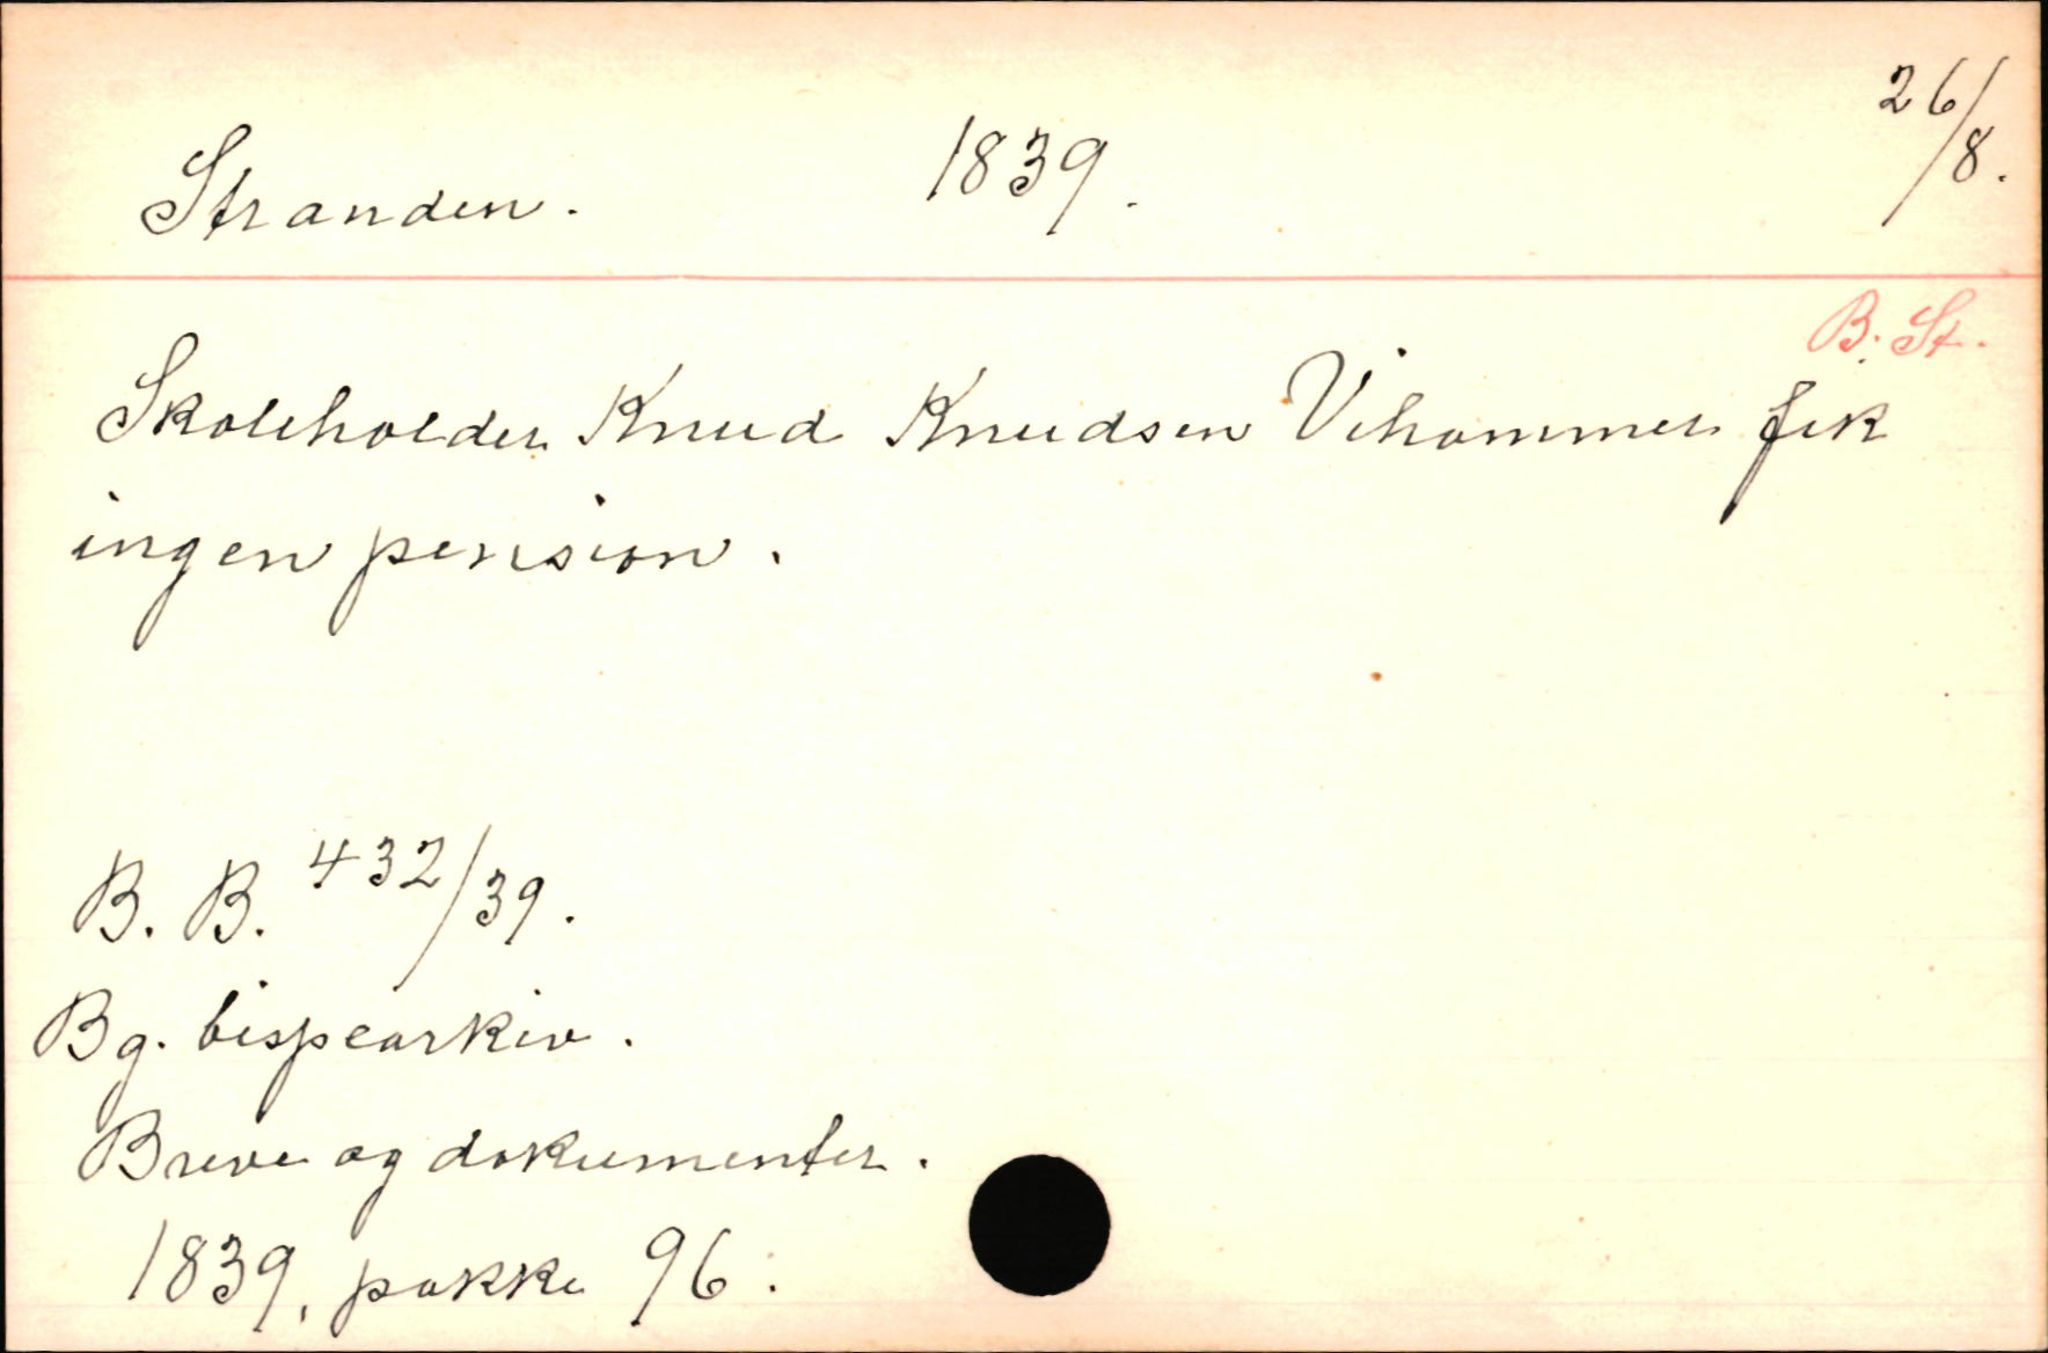 Stranden. 1839. 26/8.
B. St.
Skoleholder Knud Knudsen Vihammer fik
ingen pension.
B. B. 432/39.
Bg. bispearkiv.
Breve og dokumenter.
1839, pakke 96.